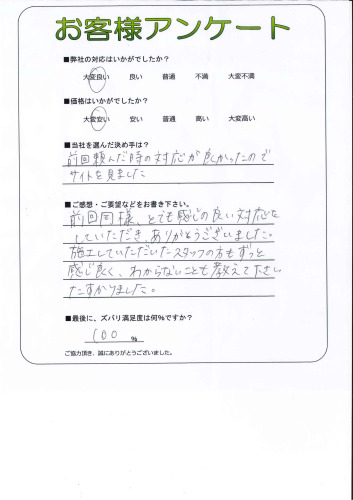 お客様アンケート
■弊社の対応はいかがでしたか?
大変良い 良い 普通 不満 大変不満
■価格はいかがでしたか?
大変安い 安い 普通 高い 大変高い
■当社を選んだ決め手は?
前回頼んだ時の対応が良かったので
サイトを見ました
■ご感想・ご要望などをお書き下さい。
前回同様、とても感じの良い対応を
していただき、ありがとうございました。
施工していただいたスタッフの方もずっと
感じ良く、わからないことも教えて下さい
たすかりました。
■最後に、ズバリ満足度は何%ですか?
100 %
ご協力頂き、誠にありがとうございました。